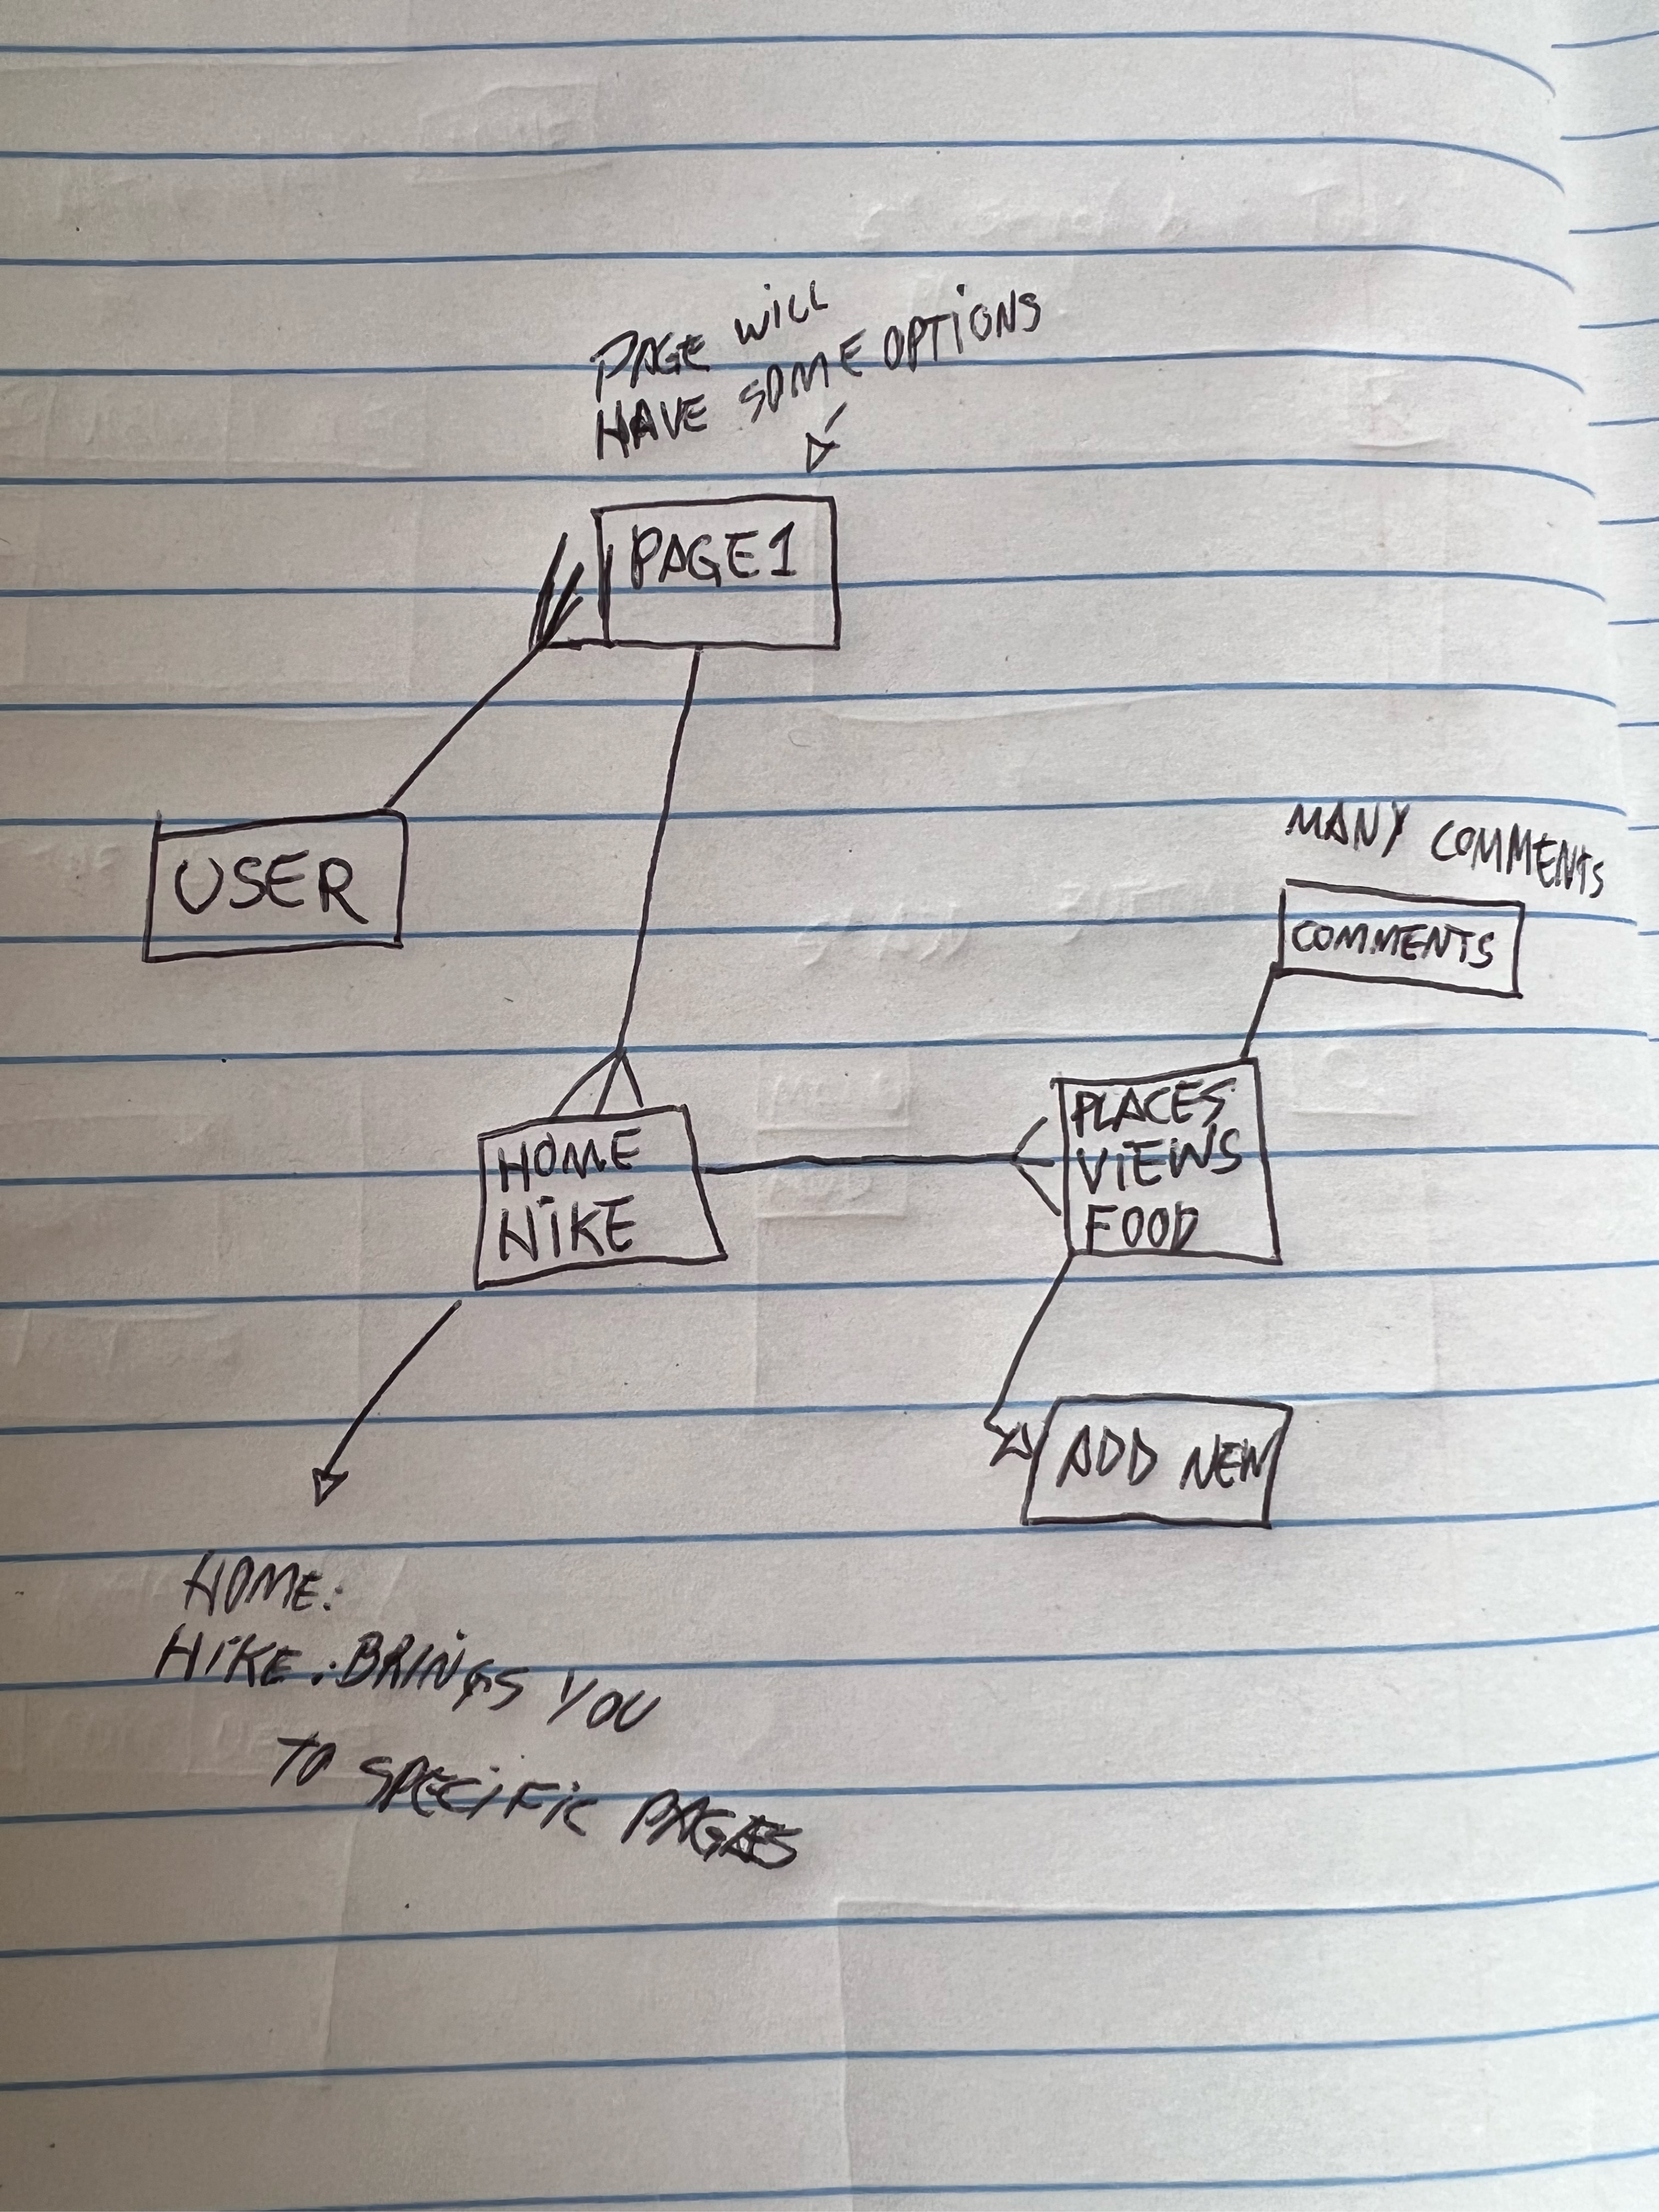 PAGE WILL
HAVE SOME OPTIONS
PAGE1
USER
MANY COMMENTS
COMMENTS
HOME
HIKE
PLACES
VIEWS
FOOD
ADD NEW
HOME:
HIKE: BRINGS YOU
TO SPECIFIC PAGES